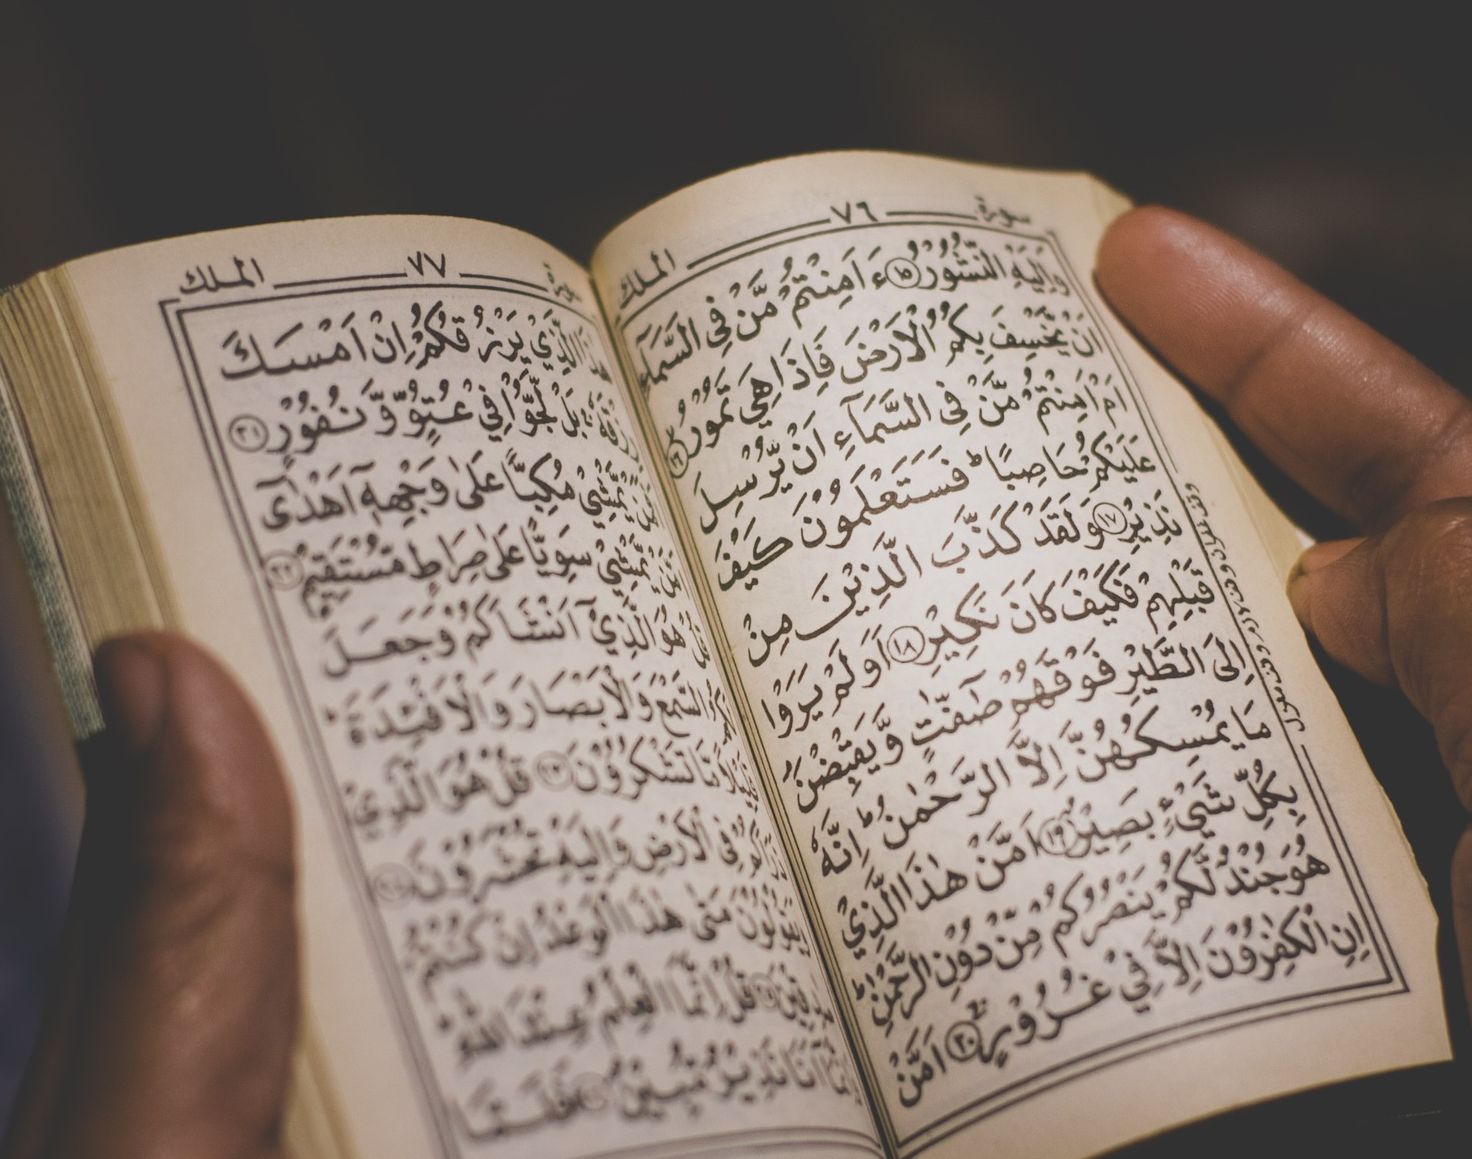 سورة ٧٦ الملك
وَاِلَيْهِ النُّشُوْرُ ﴿١٥﴾ ءَاَمِنْتُمْ مَّنْ فِي السَّمَآءِ
اَنْ يَّخْسِفَ بِكُمُ الْاَرْضَ فَاِذَا هِيَ تَمُوْرُ ﴿١٦﴾
اَمْ اَمِنْتُمْ مَّنْ فِي السَّمَآءِ اَنْ يُّرْسِلَ
عَلَيْكُمْ حَاصِبًا ط فَسَتَعْلَمُوْنَ كَيْفَ
نَذِيْرِ ﴿١٧﴾ وَلَقَدْ كَذَّبَ الَّذِيْنَ مِنْ
قَبْلِهِمْ فَكَيْفَ كَانَ نَكِيْرِ ﴿١٨﴾ اَوَلَمْ يَرَوْا
اِلَى الطَّيْرِ فَوْقَهُمْ صٰٓفّٰتٍ وَّيَقْبِضْنَ
مَا يُمْسِكُهُنَّ اِلَّا الرَّحْمٰنُ ط اِنَّهٗ
بِكُلِّ شَيْءٍ بَصِيْرٌ ﴿١٩﴾ اَمَّنْ هٰذَا الَّذِيْ
هُوَ جُنْدٌ لَّكُمْ يَنْصُرُكُمْ مِّنْ دُوْنِ الرَّحْمٰنِ ط
اِنِ الْكٰفِرُوْنَ اِلَّا فِيْ غُرُوْرٍ ﴿٢٠﴾ اَمَّنْ
سورة ٧٧ الملك
هٰذَا الَّذِيْ يَرْزُقُكُمْ اِنْ اَمْسَكَ
رِزْقَهٗ بَلْ لَّجُّوْا فِيْ عُتُوٍّ وَّنُفُوْرٍ ﴿٢١﴾
يَّمْشِيْ مُكِبًّا عَلٰى وَجْهِهٖٓ اَهْدٰٓى
يَّمْشِيْ سَوِيًّا عَلٰى صِرَاطٍ مُّسْتَقِيْمٍ ﴿٢٢﴾
هُوَ الَّذِيْٓ اَنْشَاَكُمْ وَجَعَلَ
السَّمْعَ وَالْاَبْصَارَ وَالْاَفْـِٕدَةَ ط
مَّا تَشْكُرُوْنَ ﴿٢٣﴾ قُلْ هُوَ الَّذِيْ
فِي الْاَرْضِ وَاِلَيْهِ تُحْشَرُوْنَ ﴿٢٤﴾
وَيَقُوْلُوْنَ مَتٰى هٰذَا الْوَعْدُ اِنْ كُنْتُمْ
قُلْ اِنَّمَا الْعِلْمُ عِنْدَ اللّٰهِ
اَنَا نَذِيْرٌ مُّبِيْنٌ فَلَمَّا